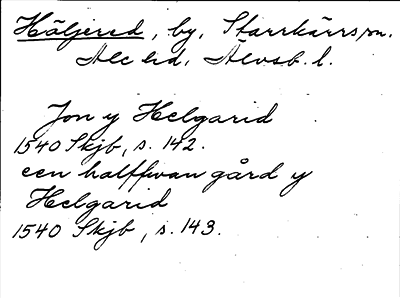 Häljered, by, Starrkärrs sn.
Ale hd, Älvsb. l.
Jon y Helgarid
1540 Skjb, s. 142.
een halffwan gård y
Helgarid
1540 Skjb, s. 143.